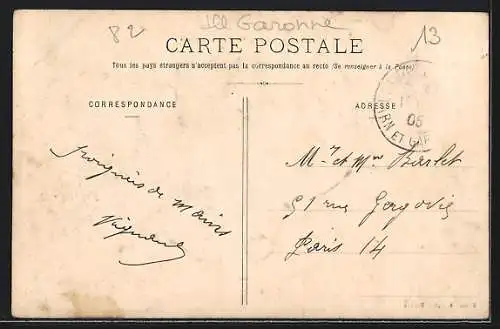 82
Ill Garonne
13
CARTE POSTALE
Tous les pays étrangers n'acceptent pas la correspondance au recto (Se renseigner à la Poste)
CORRESPONDANCE
ADRESSE
05
TARN ET GAR
poignées de mains
Mr et Mme Barlet
51 rue Gergovie
Paris 14